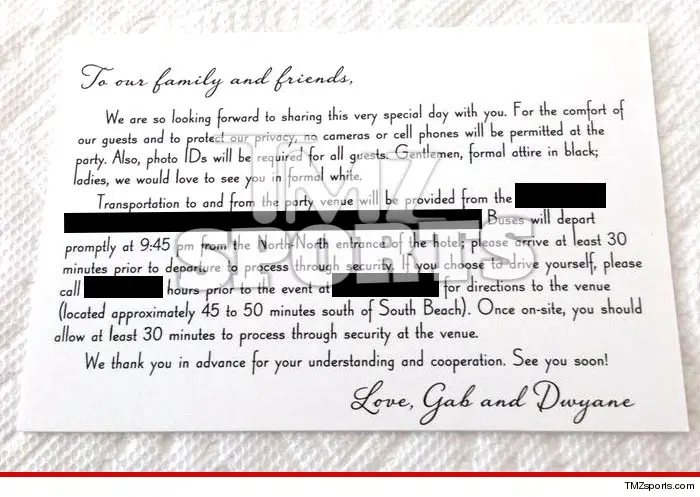 To our family and friends,
We are so looking forward to sharing this very special day with you. For the comfort of
our guests and to protect our privacy, no cameras or cell phones will be permitted at the
party. Also, photo IDs will be required for all guests. Gentlemen, formal attire in black;
ladies, we would love to see you in formal white.
Transportation to and from the party venue will be provided from the
Buses will depart
promptly at 9:45 pm from the North-North entrance of the hotel; please arrive at least 30
minutes prior to departure to process through security. If you choose to drive yourself, please
call hours prior to the event at for directions to the venue
(located approximately 45 to 50 minutes south of South Beach). Once on-site, you should
allow at least 30 minutes to process through security at the venue.
We thank you in advance for your understanding and cooperation. See you soon!
Love, Gab and Dwyane
TMZ
SPORTS
TMZsports.com